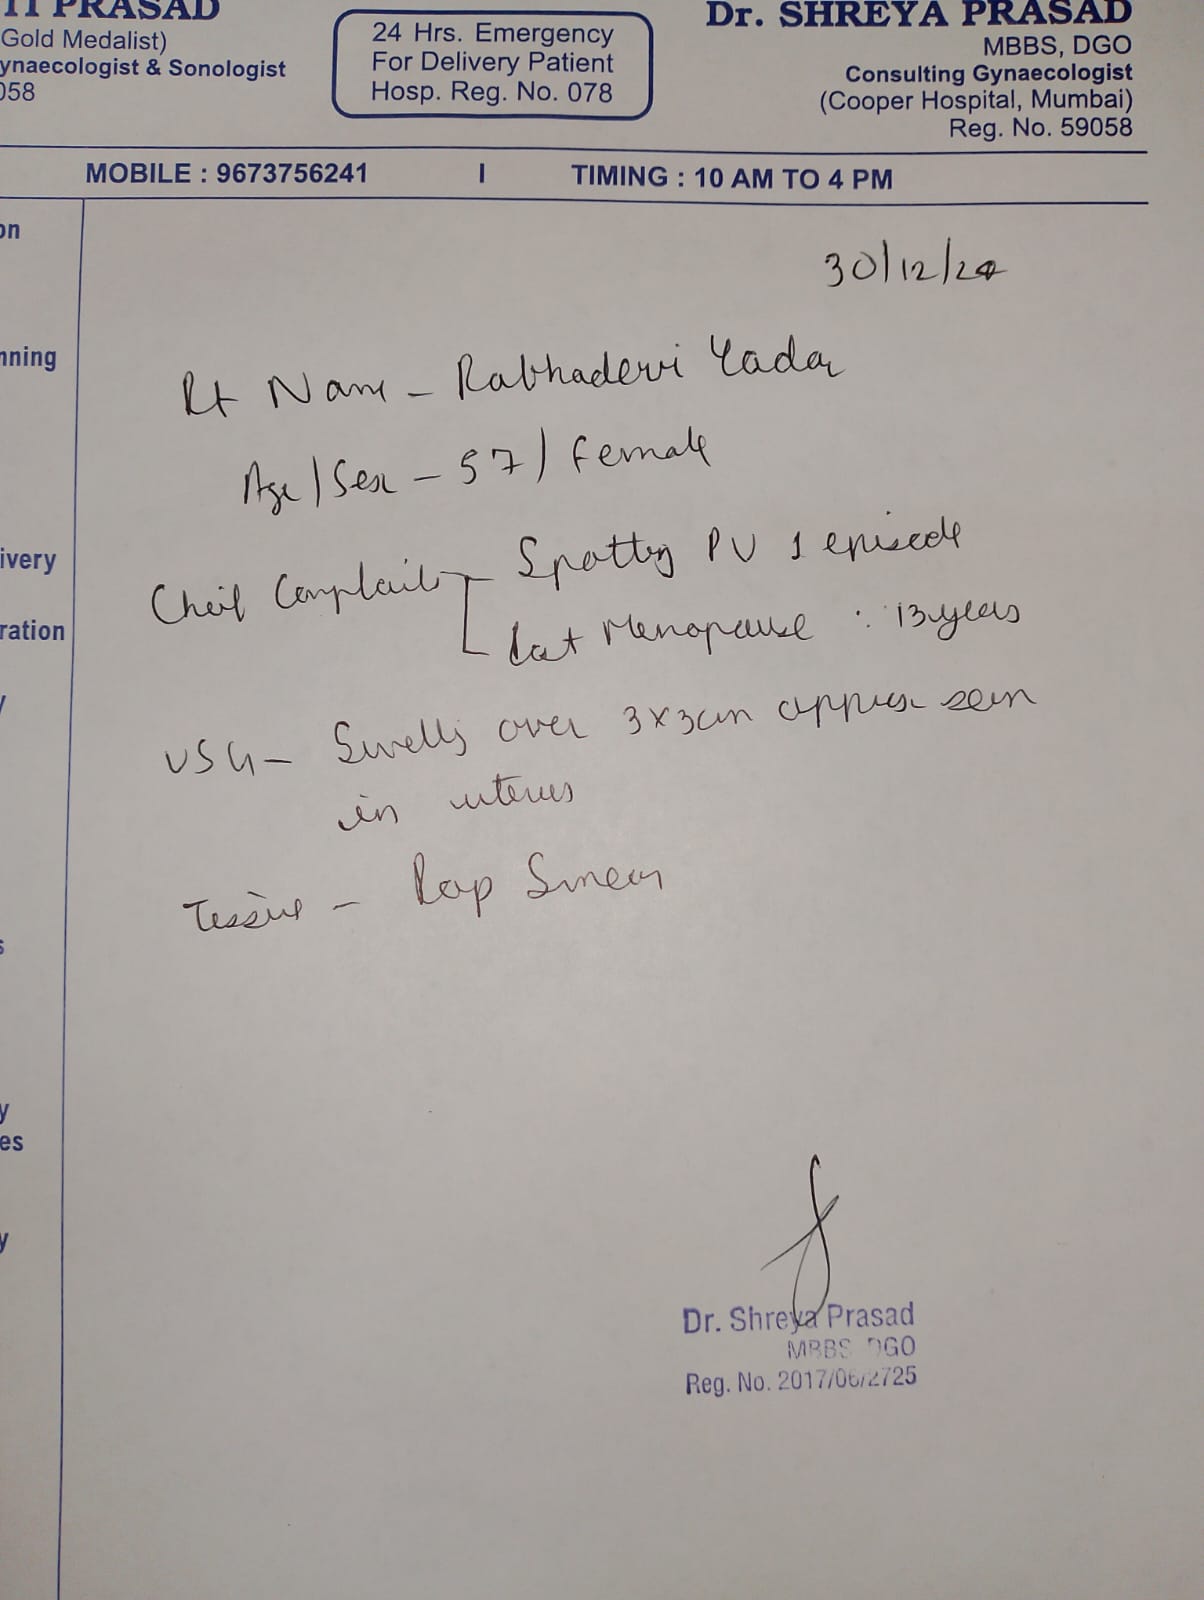 TI PRASAD
Gold Medalist)
ynaecologist & Sonologist
058
24 Hrs. Emergency
For Delivery Patient
Hosp. Reg. No. 078
Dr. SHREYA PRASAD
MBBS, DGO
Consulting Gynaecologist
(Cooper Hospital, Mumbai)
Reg. No. 59058
MOBILE : 9673756241 | TIMING : 10 AM TO 4 PM
on
nning
ivery
ration
y
s
y
es
y
30/12/24
Pt Name - Rabhadevi Yadav
Age/Sex - 57/Female
Cheif Complaints - Spotting PV 1 episode
Last Menopause : 13 years
USG - Swelling over 3x3cm approx seen
in uterus
Tissue - Pap Smear
Dr. Shreya Prasad
MBBS DGO
Reg. No. 2017/06/2725